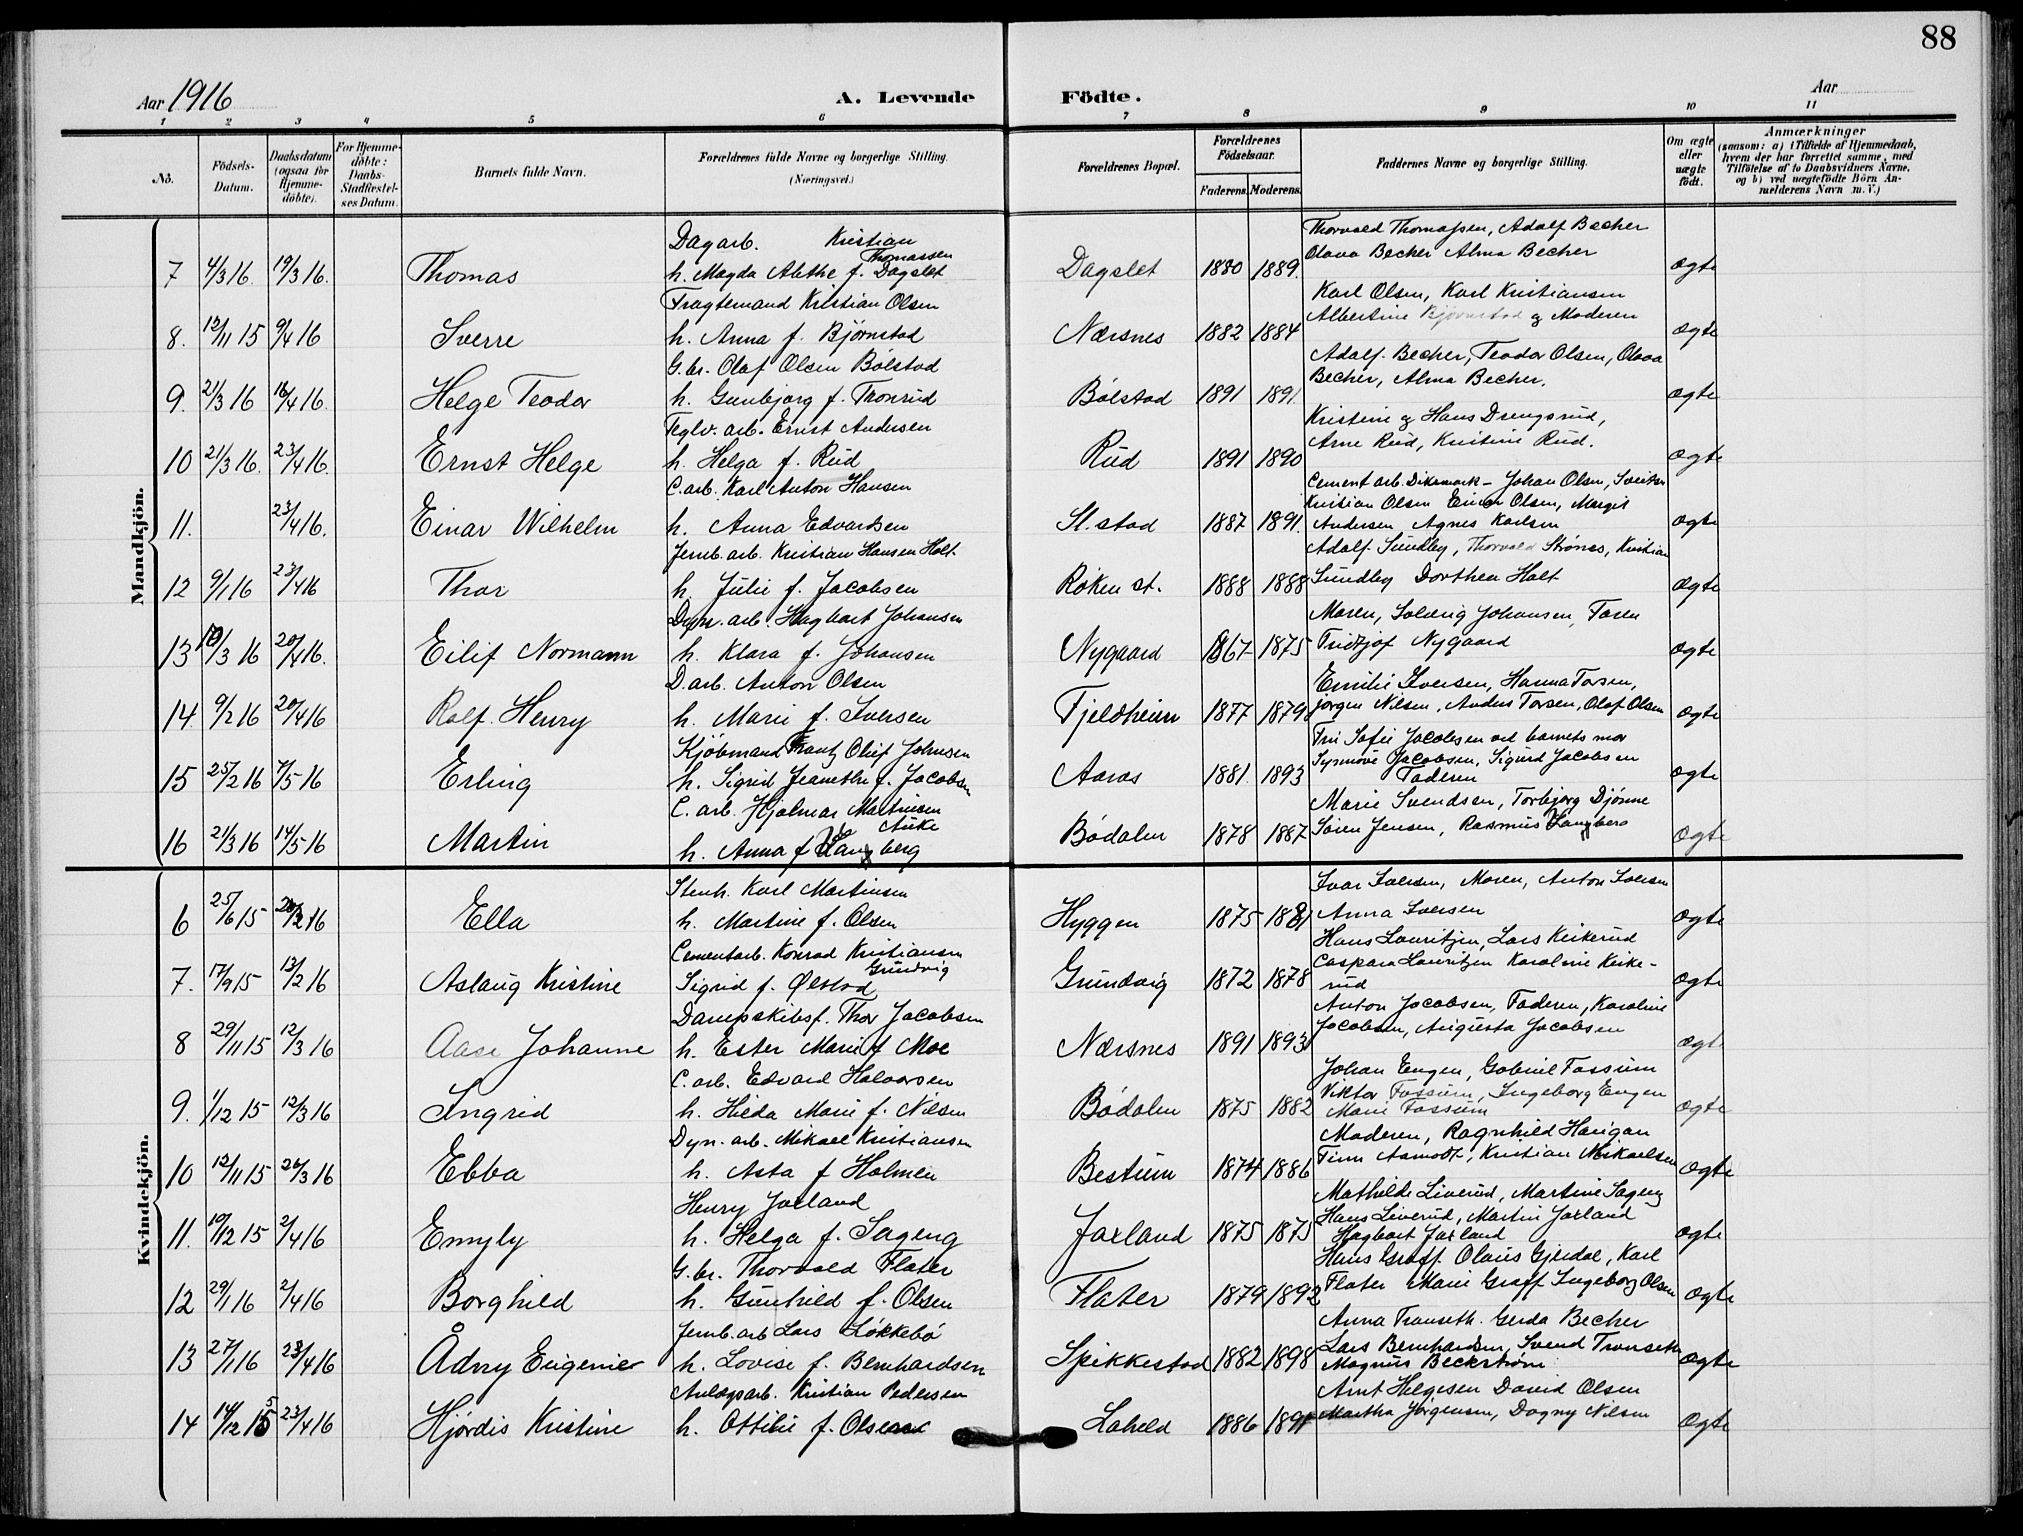 88
Aar 1916
A. Levende Födte.
Aar
1 2 3 4 5 6 7 8 9 10 11
No.
Födsels-Datum.
Daabsdatum (ogsaa for Hjemme-döbte).
For Hjemme-döbte: Daabs-Stadfæstel-ses Datum.
Barnets fulde Navn.
Forældrenes fulde Navne og borgerlige Stilling. (Næringsvei.)
Forældrenes Bopæl.
Forældrenes Födselsaar.
Faderens. Moderens.
Faddernes Navne og borgerlige Stilling.
Om ægte eller uægte födt.
Anmærkninger (saasom: a) i Tilfælde af Hjemmedaab, hvem der har forrettet samme, med Tilföielse af to Daabsvidners Navne, og b) ved uægtefödte Börn Anmelderens Navn m. V.)
Mandkjön.
Dagarb. Kristian Thomassen
Thorvald Thomassen, Adolf Becher
7 4/3 16. 19/3 16. Thomas h. Magda Alethe f. Dagslet Dagslet 1880 1889. Olava Becher Alma Becher ægte
Fragtemand Kristian Olsen
Karl Olsen, Karl Kristiansen
8. 12/11 15 9/4 16 Sverre h. Anna f. Bjørnstad Nærsnes 1882 1884 Albertine Bjørnstad og Moderen ægte
G.br. Olaf Olsen Bólstad
Adolf Becher, Teodor Olsen, Olava
9. 21/3 16 16/4 16. Helge Teodor h. Gunbjørg f. Tronrud Bólstad 1891 1891 Becher, Alma Becher. ægte
Teglv. arb. Ernst Andersen
Kristine og Hans Drengsrud,
10 21/3 16. 23/4 16. Ernst Helge h. Helga f. Rud Rud 1891 1890 Arne Rud, Kristine Rud. ægte
C.arb. Karl Anton Hansen
Cement arb. Dikemark - Johan Olsen,
Kristian Olsen Einar Olsen, Margit
11. 23/4 16. Einar Wilhelm h. Anna Edvardsen St. stad 1887 1891. Andersen, Agnes Karlsen ægte
Jernb. arb. Kristian Hansen Holt
Adolf Sundby, Thorvald Strønes, Kristian
12 9/1 16 23/4 16 Thor h. Julie f. Jacobsen Røken st. 1888 1888 Sundby Dorthea Holt ægte
Dyn. arb. Hagbart Johansen
Maren, Solveig Johansen,
13 10/3 16 20/4 16. Eilif Normann h. Klara f. Johansen Nygaard 1867 1875 Fridtjof Nygaard ægte
D.arb. Anton Olsen
Emilie Iversen, Hanna Torsen,
14. 9/2 16 20/4 16 Rolf Henry h. Marie f. Iversen Fjeldheim 1877 1879 Jørgen Nilsen, Anders Torsen, Olaf Olsen ægte
Kjöbmand Frantz Oluf Johnsen
Fru Sofie Jacobsen ved barnets mor
15 25/2 16 7/5 16 Erling h. Sigrid Jeanethe f. Jacobsen Aaros 1881. 1893 Synnöve Jacobsen, Sigurd Jacobsen
Faderen ægte
C. arb. Hjalmar Martinsen Auke
Marie Svendsen, Torbjørg Djönne
16 21/3 16 14/5 16 Martin h. Anna f Langberg Bódalen 1878 1887 Søren Jensen, Rasmus Langberg ægte
Kvindekjön.
Stenh. Karl Martinsen
Ivar Iversen, Maren, Anton Iversen
6 25/6 15 20/2 16 Ella h. Martine f. Olsen Hyggen 1875 1881 Anna Iversen ægte
Cementarb. Konrad Kristiansen Grundvig
Hans Lauritzen, Lars Kirkerud
7. 17/9 15 13/2 16 Aslaug Kristine Sigrid f. Ølstad Grundvig 1872 1878 Caspara Lauritzen Karoline Kirke-
rud ægte
Dampskibsf. Thor Jacobsen
Anton Jacobsen, Faderen, Karoline
8 29/11 15 12/3 16 Aase Johanne h. Ester Marie f Moe Nærsnes 1891 1893 Jacobsen, Augusta Jacobsen ægte
C. arb. Edvard Halvorsen
Johan Engen, Gabriel Fossum
9. 1/12 15 12/3 16 Ingrid h. Hilda Marie f. Nilsen Bódalen 1875 1882 Viktor Fossum, Ingeborg Engen
Marie Fossum ægte
Dyn. arb. Mikael Kristiansen
Moderen, Ragnhild Haugan
10 12/11 15 26/3 16 Ebba h. Asta f Holmen Bestum 1874 1886 Finn Aamodt, Kristian Mikaelsen ægte
Henry Jaxland
Mathilde Liverud, Martine Sageng
11. 10/12 15 2/4 16 Emyly h. Helga f. Sageng Jaxland 1875 1875 Hans Liverud, Martin Jaxland
Hagbart Jaxland ægte
G.br. Thorvald Flater
Hans Graff. Olaus Gjerdal, Karl
12 29/1 16 2/4 16 Borghild h. Gunhild f. Olsen Flater 1879 1892 Flater Marie Graff Ingeborg Olsen ægte
Jernb. arb Lars Løkkebö
Anna Transeth. Gerda Becher
13 27/1 16 23/4 16 Ådny Eugenie h. Lovise f. Bernhardsen Spikkestad 1882 1898 Lars Bernhardsen, Svend Transeth
Magnus Beckstrøm ægte
Anlægsarb. Kristian Pedersen
Arnt Helgesen David Olsen
14 14/12 15 23/4 16 Hjørdis Kristine h. Ottilie f. Olsen Laheld 1886 1891 Martha Jørgensen, Dagny Nilsen ægte